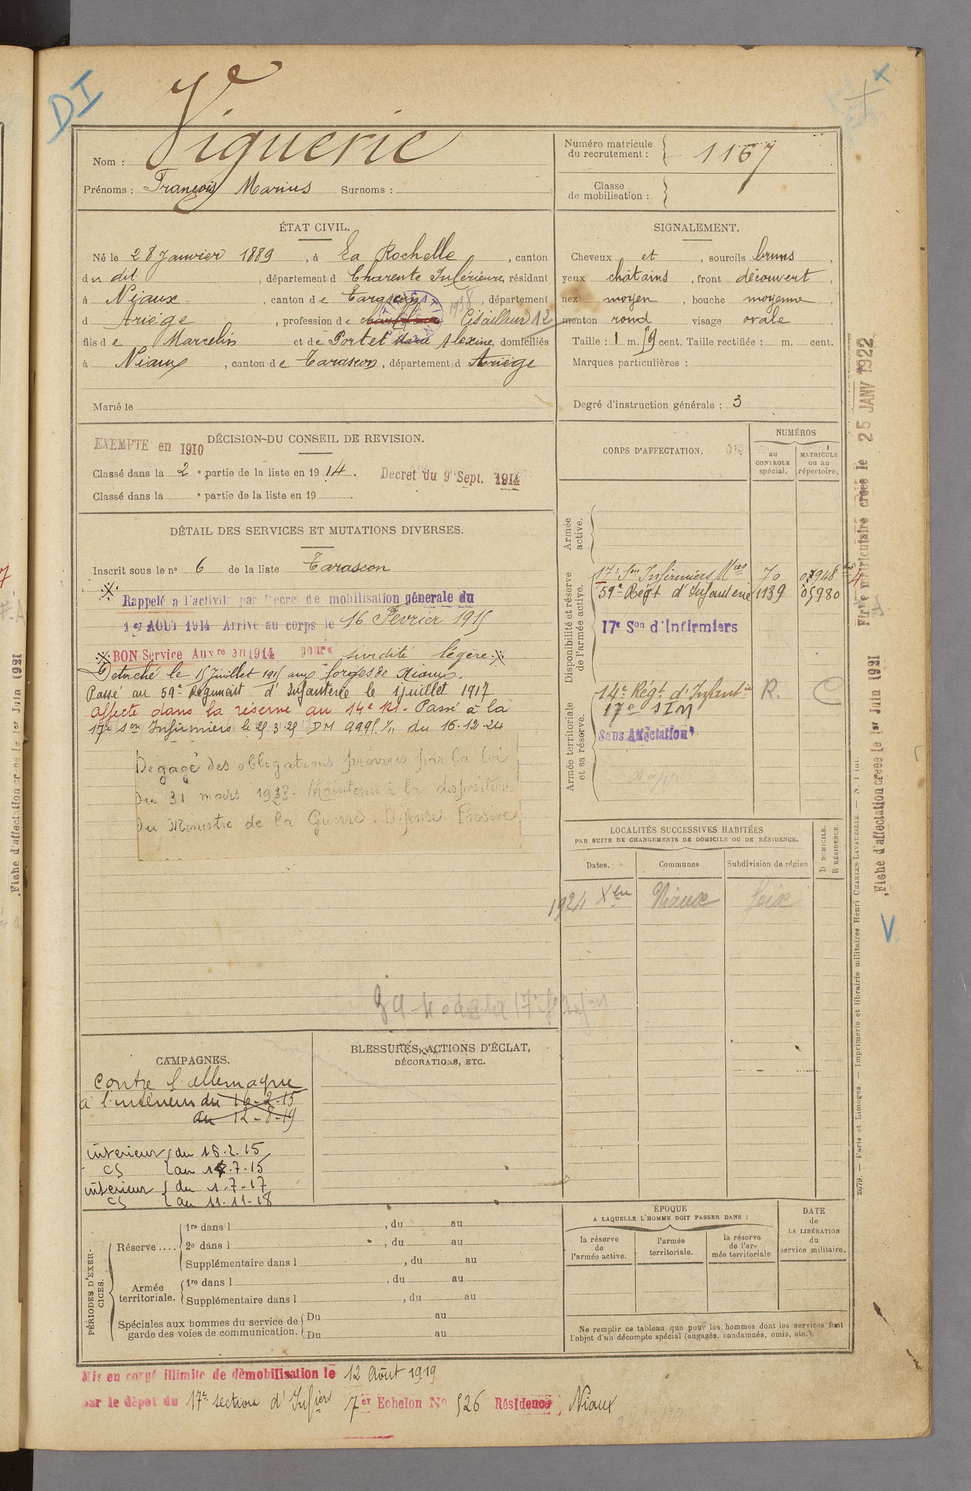 DI
Nom : Viguerie
Prénoms : François Marius Surnoms :
Numéro matricule du recrutement : 1167
Classe de mobilisation :
ÉTAT CIVIL.
Né le 28 Janvier 1889, à La Rochelle, canton
du dit, département d Charente Inférieure, résidant
à Niaux, canton de Tarascon, département
d Ariège, profession de Cisailleur 12
fils de Marcelin et de Portet Alexine, domiciliés
à Niaux, canton de Tarascon, département d Ariège
Marié le
SIGNALEMENT.
Cheveux et, sourcils bruns,
yeux châtains, front découvert,
nez moyen, bouche moyenne
menton rond visage ovale
Taille : 1 m. 59 cent. Taille rectifiée : m. cent.
Marques particulières :
Degré d'instruction générale : 3
DÉCISION DU CONSEIL DE REVISION.
EXEMPTE en 1910
Classé dans la 2e partie de la liste en 1914. Decret du 9 Sept. 1914
Classé dans la e partie de la liste en 19
DÉTAIL DES SERVICES ET MUTATIONS DIVERSES.
Inscrit sous le no 6 de la liste Tarascon
Rappelé a l'activité par Decret de mobilisation générale du
1er AOUT 1914 Arrivé au corps le 16 Fevrier 1915
BON Service Auxre en 1914 pour surdité légère.
Détaché le 15 Juillet 1915 aux forges de Niaux.
Passé au 59e Régiment d'Infanterie le 1 Juillet 1917
Affecté dans la réserve au 14e RI. Passé à la
17e Son Infirmiers le 25.3.25 DM 9995 1/11 du 16-12-24
Dégagé des obligations prévues par la loi
du 31 mars 1928. Maintenu à la disposition
du Ministre de la Guerre. Défense Passive
CORPS D'AFFECTATION.
NUMÉROS
au CONTROLE spécial.
MATRICULE ou au répertoire.
Armée active.
Disponibilité et réserve de l'armée active.
17e Son Infirmiers Mres 70 07948
59e Régt d'Infanterie 1139 05930
17e Son d'Infirmiers
Armée territoriale et sa réserve.
14e Régt d'Infantie R. C
17e SIM
Sans Affectation
LOCALITÉS SUCCESSIVES HABITÉES
PAR SUITE DE CHANGEMENTS DE DOMICILE OU DE RÉSIDENCE.
Dates. Communes Subdivision de région D. DOMICILE. R. RÉSIDENCE.
1924 Xbre Niaux Foix
CAMPAGNES.
Contre l'Allemagne
à l'intérieur du 16-2-15
au 12-8-19
intérieur du 16.2.15
CS au 14.7.15
intérieur du 1-7-17
CS au 11-11-18
BLESSURES, ACTIONS D'ÉCLAT,
DÉCORATIONS, ETC.
PÉRIODES D'EXERCICES.
Réserve....
1re dans l , du au
2e dans l , du au
Supplémentaire dans l , du au
Armée territoriale.
1re dans l , du au
Supplémentaire dans l , du au
Spéciales aux hommes du service de garde des voies de communication.
Du au
Du au
ÉPOQUE
A LAQUELLE L'HOMME DOIT PASSER DANS :
la réserve de l'armée active.
l'armée territoriale.
la réserve de l'armée territoriale
DATE de LA LIBÉRATION du service militaire.
Ne remplir ce tableau que pour les hommes dont les services font
l'objet d'un décompte spécial (engagés, condamnés, omis, etc.).
Mis en congé illimité de démobilisation le 12 Août 1919
par le dépôt du 17e section d'Infier 7er Echelon No 526 Résidence, Niaux
Fiche matriculaire créée le 25 JANV 1922
Fiche d'affectation créée le 1er Juin 1921
V.
2079. — Paris et Limoges. — Imprimerie et librairie militaires Henri CHARLES-LAVAUZELLE.
Fiche d'affectation créée le 1er Juin 1921